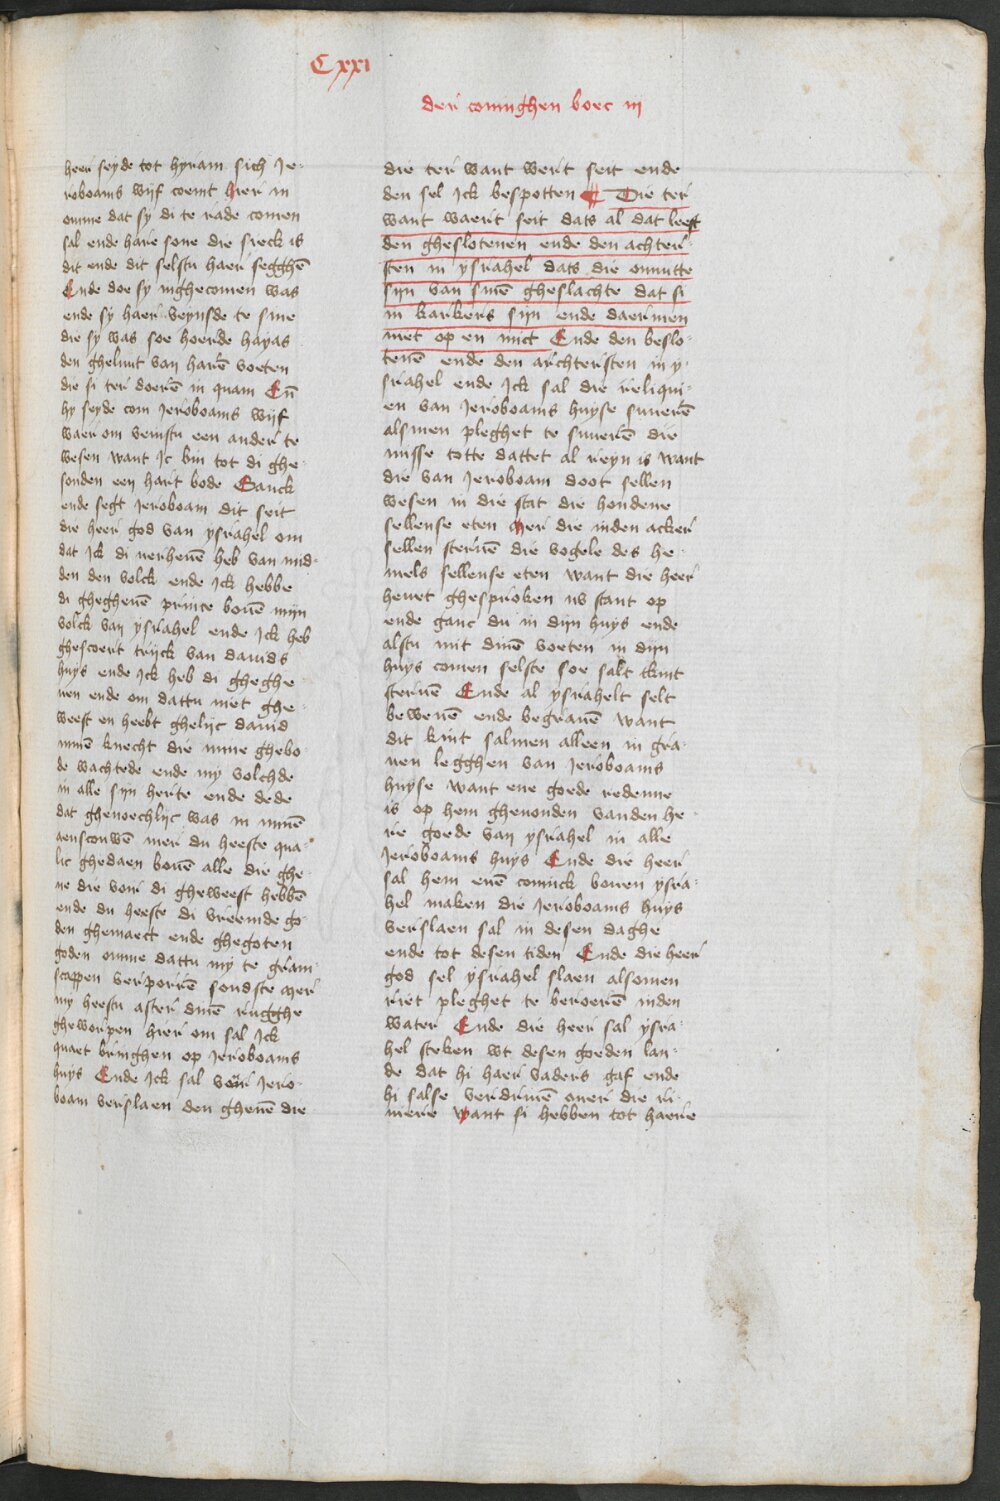 Cxxi
der coninghen boec iij
heer seyde tot hyram sich Je-
roboams wijf coemt hier in
omme dat sy di te rade comen
sal ende hare sone die sieck is
dit ende dit selstu haer segghē
Ende doe sy inghecomen was
ende sy haer veynsde te sine
die sy was soe hoerde hayas
den gheluut van harē voeten
die si ter doerē in quam Eñ
hy seyde com Jeroboams wijf
waer om veinstu een ander te
wesen want Jc bin tot di ghe-
sonden een hart bode Ganck
ende segt Jeroboam dit seit
die heer god van ysrahel om
dat Jck di verhenē heb van mid-
den den volck ende Jck hebbe
di ghegheuē prince bouē mijn
volck van ysrahel ende Jck heb
ghescoert trijck van dauids
huys ende Jck heb di gheghe-
uen ende om dattu niet ghe-
weest en heebt ghelijc dauid
minē knecht die mine ghebo-
de wachtede ende my volchde
in alle sijn herte ende dede
dat ghenoechlijc was in minē
aenscouwē mer du heeste qua-
lic ghedaen bouē alle die ghe-
ne die voir di gheweest hebbē
ende du heeste di vreemde go-
den ghemaect ende ghegoten
goden omme dattu my te gram-
scappen verporrē sondste mer
my heestu after dinē rugghe
gheworpen hier om sal Jck
quaet bringhen op Jeroboams
huys Ende Jck sal voir Jero-
boam verslaen den ghenē die
die ter want wert seit ende
den sel Jck bespotten ¶ Die ter
want waert seit dats al dat leeft
den gheslotenen ende den achter-
sten in ysrahel dats die onnutte
sijn van sinē gheslachte dat si
in karkers sijn ende daermen
niet op en mict Ende den beslo-
tenē ende den archtersten in y-
srahel ende Jck sal die reliqui-
en van Jeroboams huyse suuerē
alsmen pleghet te suuerē die
misse totte dattet al reyn is want
die van Jeroboam doot sellen
wesen in die stat die hondene
sellense eten Mer die inden acker
sellen steruē die vogele des he-
mels sellense eten want die heer
heuet ghesproken us stant op
ende ganc du in dijn huys ende
alstu mit dinē voeten in dijn
huys comen selste soe salt tkint
steruē Ende al ysrahelt selt
bewenē ende begrauē want
dit kint salmen alleen in gra-
uen legghen van Jeroboams
huyse want ene goede redenne
is op hem gheuonden vanden he-
re goede van ysrahel in alle
Jeroboams huys Ende die heer
sal hem enē coninck bouen ysra-
hel maken die Jeroboams huys
verslaen sal in desen daghe
ende tot desen tiden Ende die heer
god sel ysrahel slaen alsomen
riet pleghet te beroerē inden
water Ende die heer sal ysra-
hel steken wt desen goeden lan-
de dat hi haer vaders gaf ende
hi salse verdriuē ouer die ri-
uiere want si hebben tot haere